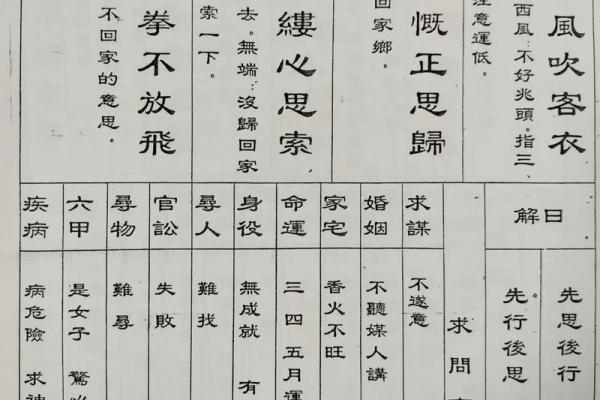 風吹客衣
西風:不好兆頭。指三、
注意運低。
慨正思歸
回家鄉。
縷心思索
去。無端:沒歸回家
索一下。
拳不放飛
不回家的意思。
日解
先思後行
先行後思。
求問
求謀 不遂意
婚姻 不聽媒人講
家宅 香火不旺
命運 三四五月運
身役 無成就 有
尋人 難找
官訟 失敗
尋物 難尋
六甲 是女子 驚
疾病 病危險 求神